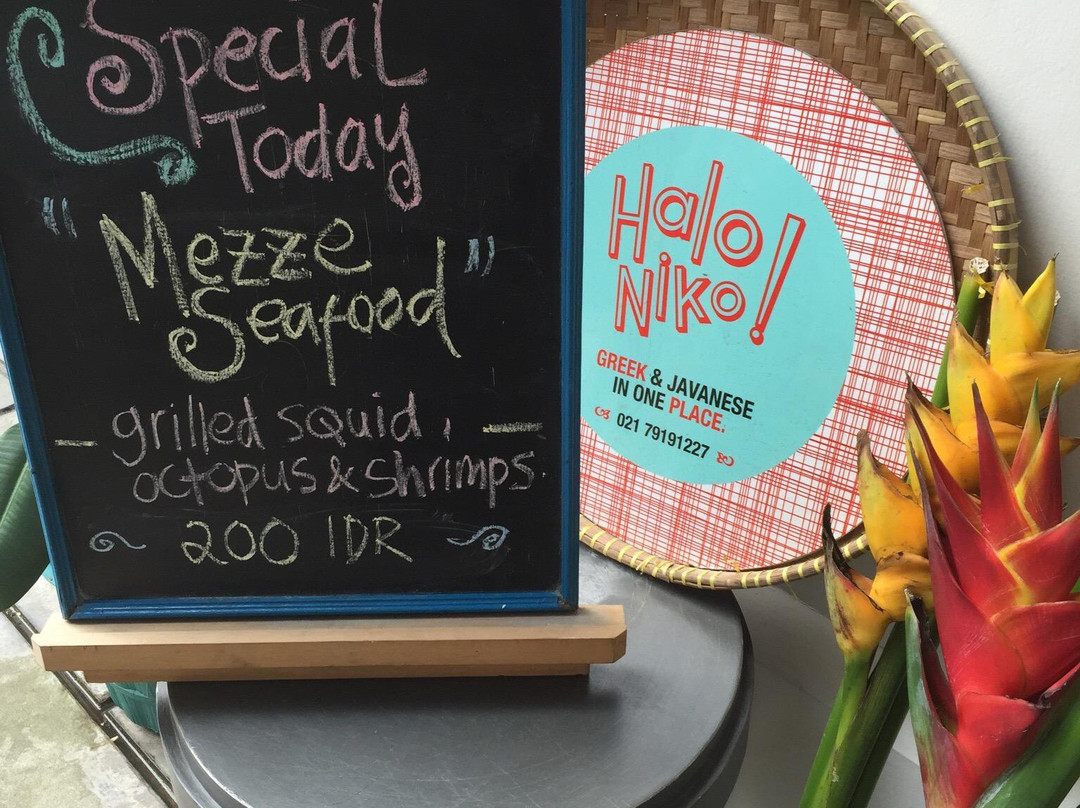 Special
Today
"Mezze
Seafood"
- grilled squid, -
octopus & shrimps.
200 IDR
Halo
Niko!
GREEK & JAVANESE
IN ONE PLACE.
021 79191227